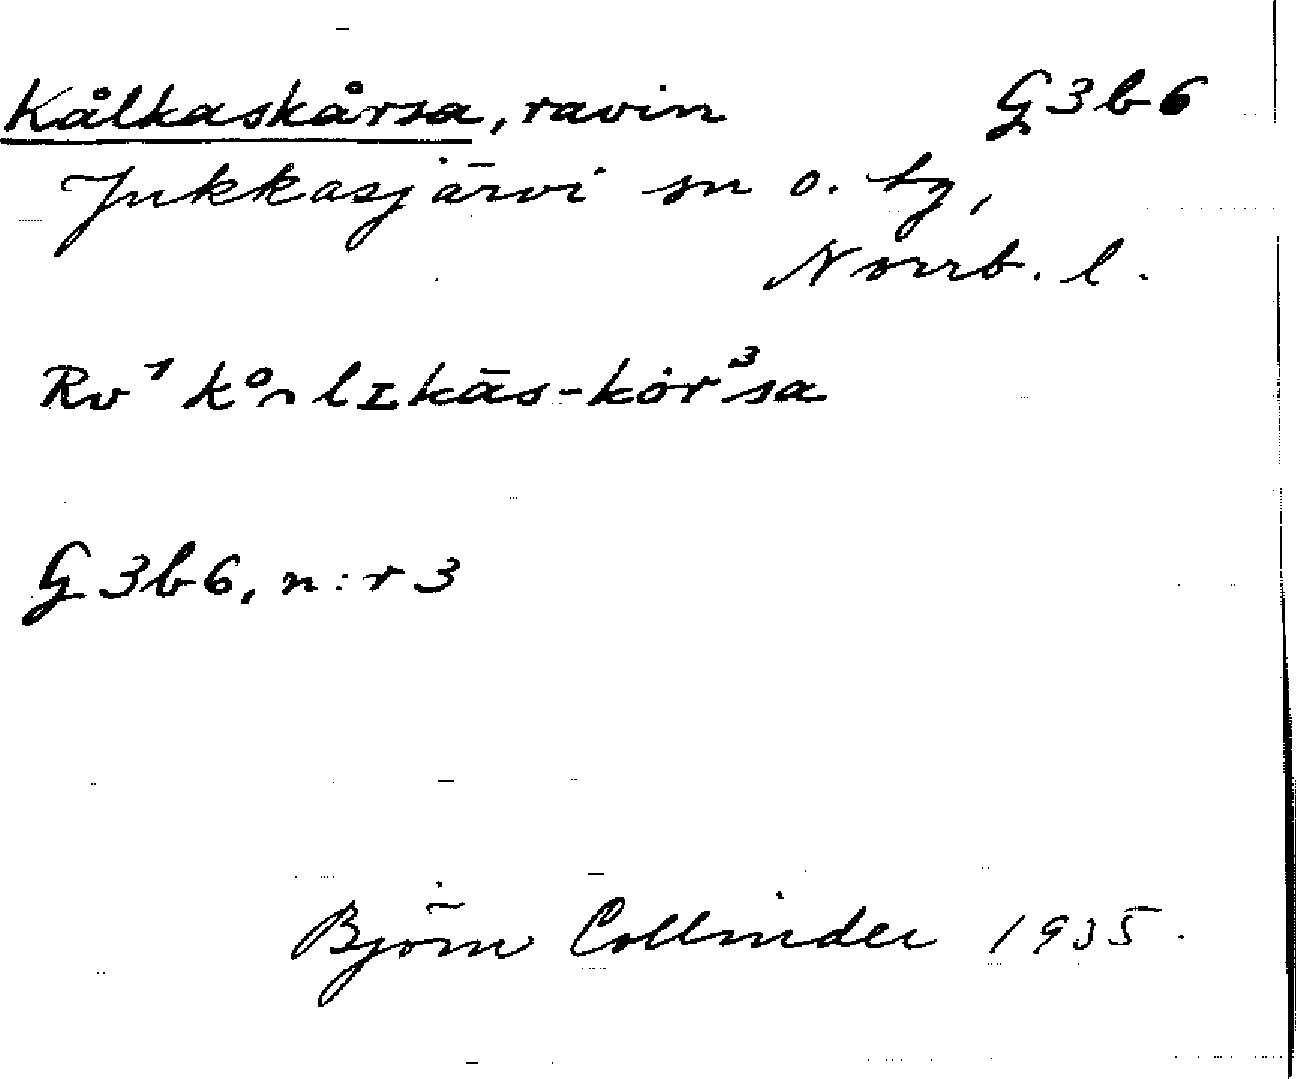 Kålkaskårsa, ravin G3b6
Jukkasjärvi sn o. tg,
Norrb. l.
Rv
G3b6, n:r 3
Björn Collinder 1935.